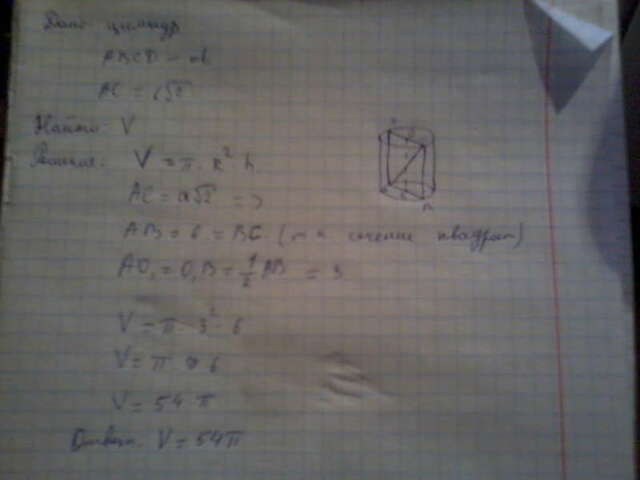 Дано: цилиндр
ABCD –
AC = 6√2
Найти V
Решение: V = π · R² h
AC = a√2 =>
AB = 6 = BC (т.к. сечение квадрат)
AO₁ = O₁B = 1/2 AB = 3
V = π · 3² · 6
V = π 9 6
V = 54 π
Ответ. V = 54π